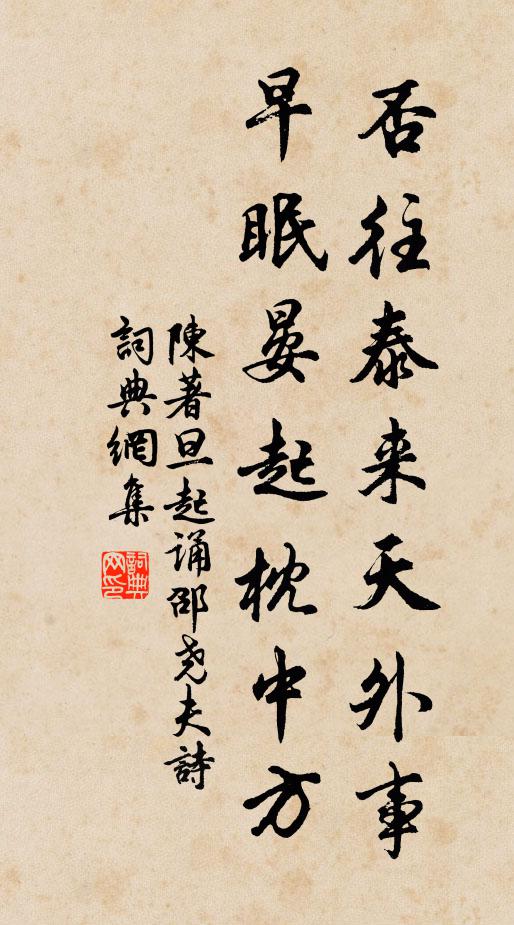 否往泰来天外事
早眠晏起枕中方
陳著旦起诵邵尧夫詩
詞典網集
詞典
网印